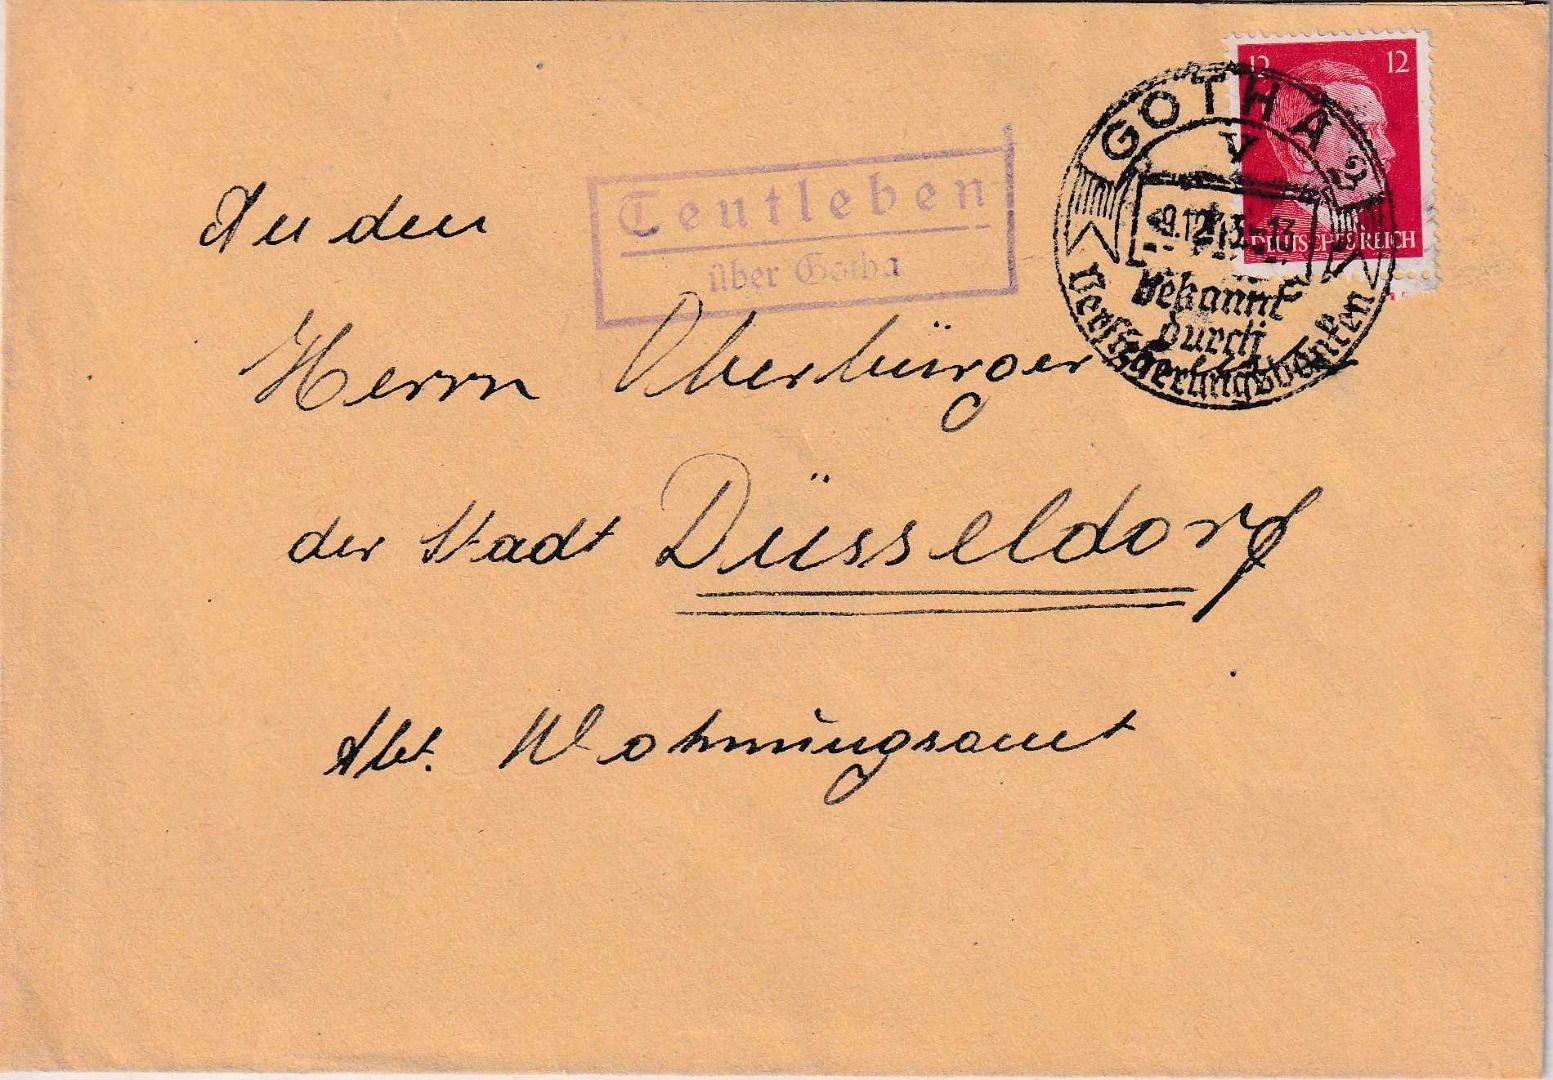 12 12
DEUTSCHES REICH
GOTHA 2
v
bekannt
durch
Versicherungsbanken
Teutleben
über Gotha
An den
Herrn Oberbürger
der Stadt Düsseldorf
Abt. Wohnungsamt